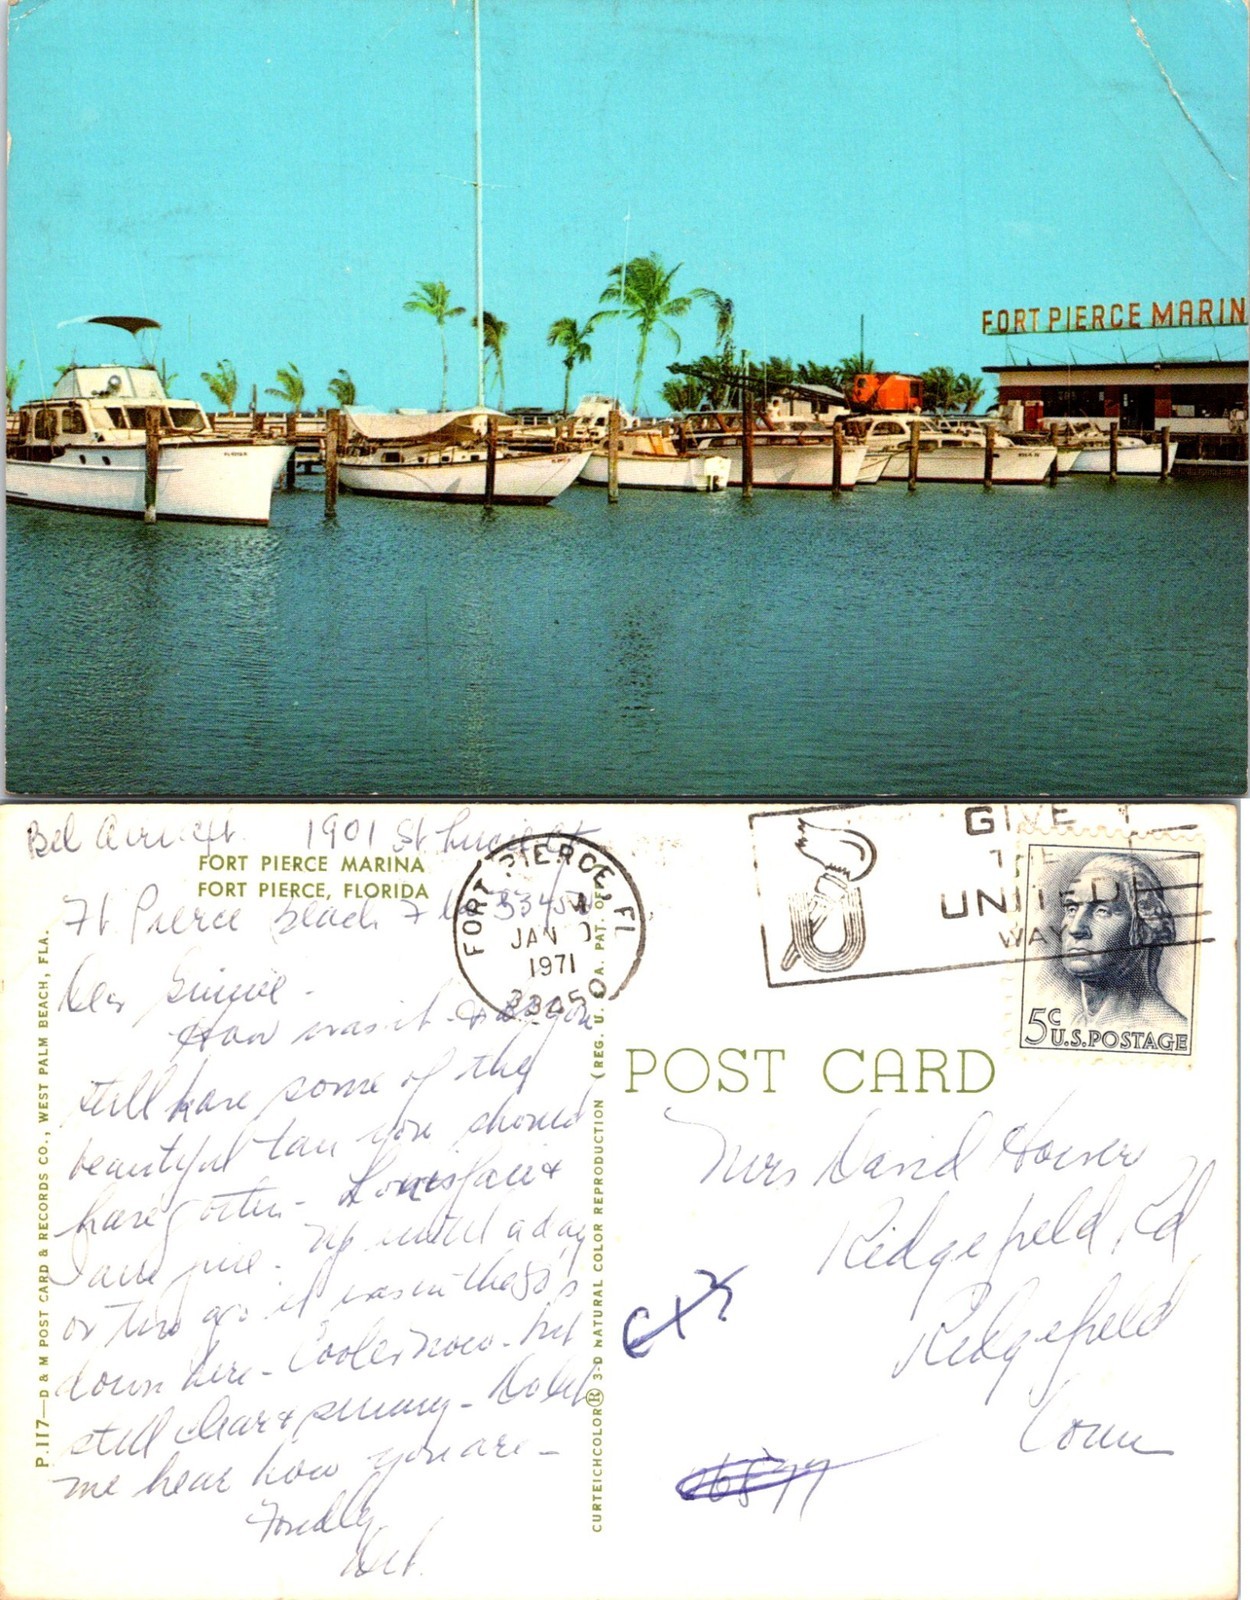 FORT PIERCE MARIN
1901 St Lucie Ct
FORT PIERCE MARINA
FORT PIERCE, FLORIDA
Ft Pierce Beach Fla
FORT PIERCE, FL
JAN
1971
GIVE
THE
UNITED
WAY
5c U.S. POSTAGE
P.117—D & M POST CARD & RECORDS CO., WEST PALM BEACH, FLA.
Dear Ginnie -
How was it - you
still have some of the
beautiful tan you should
have gotten -
I are fine. Up until a day
or two ago it was in the 80's
down here - Cooler now - but
still clear & sunny - Do let
me hear how you are -
Fondly
CURTEICHCOLOR® 3-D NATURAL COLOR REPRODUCTION (REG. U.S.A. PAT. OFF.)
POST CARD
Mrs David
Ridgefield Rd
Ridgefield
Conn